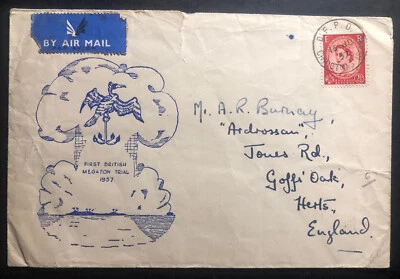 BY AIR MAIL
FIRST BRITISH
MEGATON TRIAL
1957
Mr. A. R. Burnay,
"Ardrossan",
Jones Rd,
Goffs Oak,
Herts,
England.